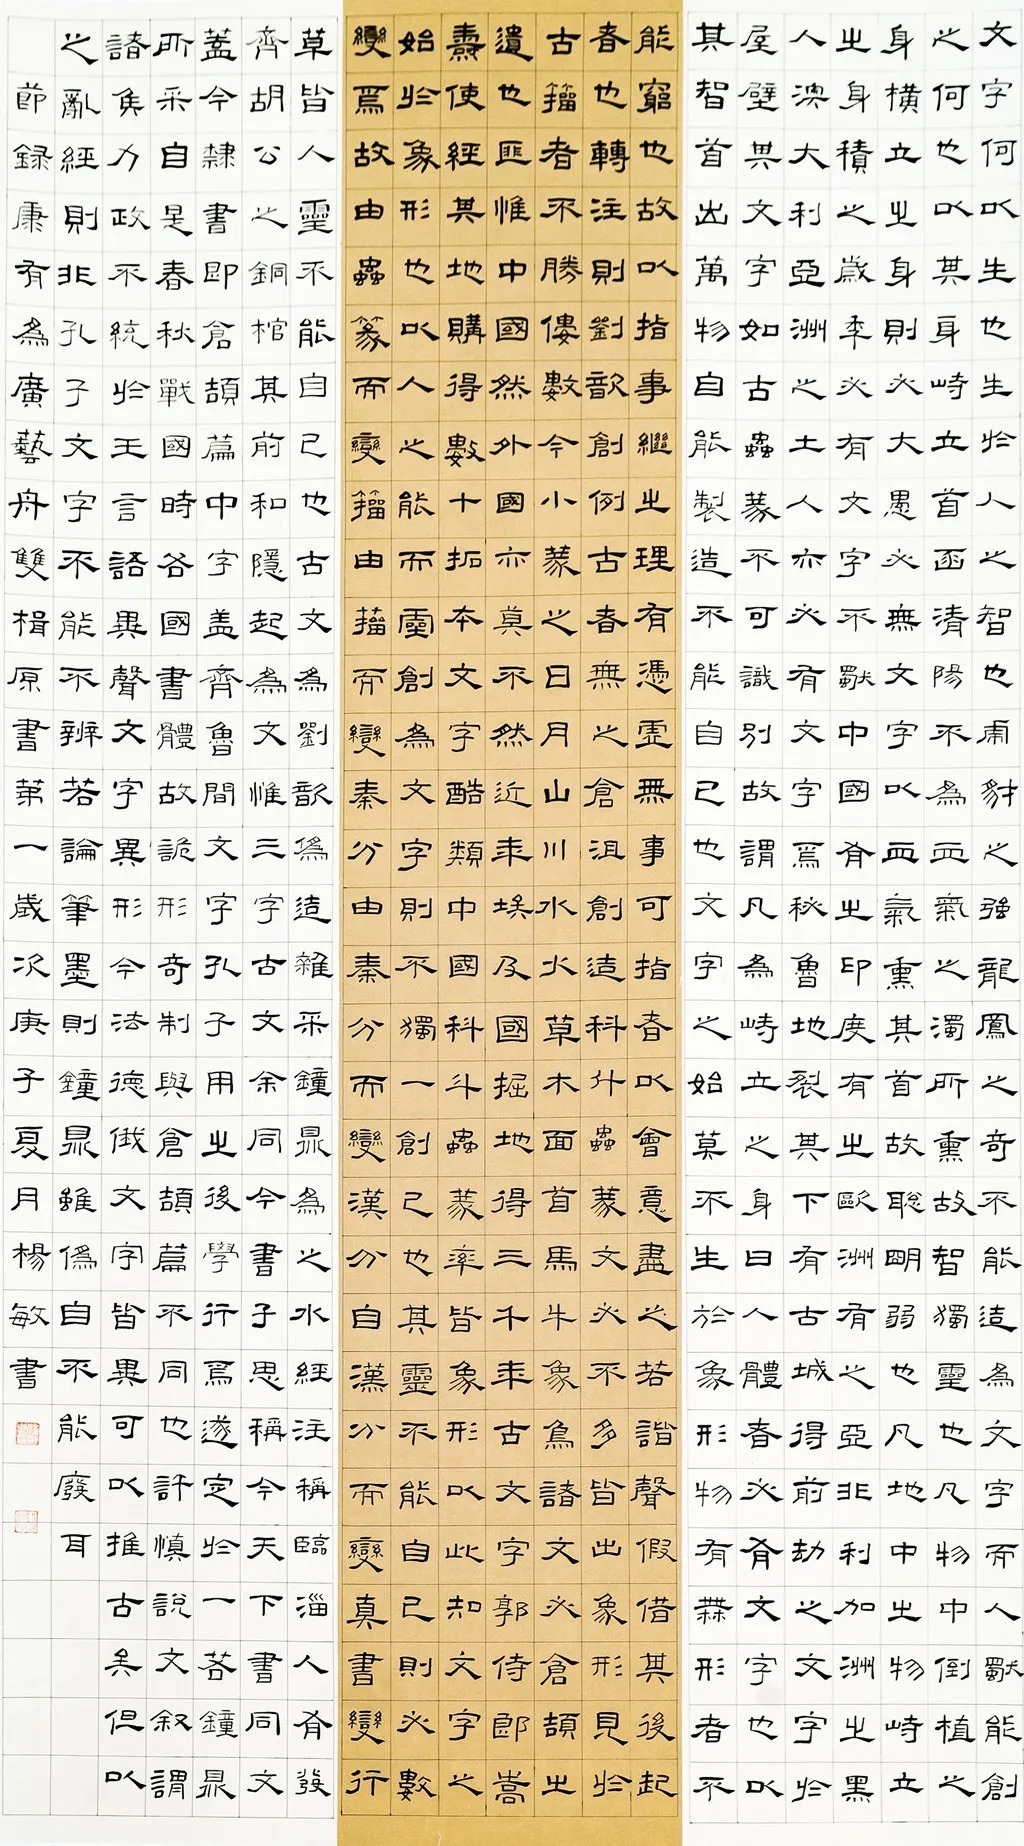 文字何以生也生於人之智也虎豺之強龍鳳之奇不能造為文字而人獸能創
之何也以其身峙立首函清陽不為血氣之濁所熏故智獨靈也凡物中倒植之
身橫立之身則必大愚必無文字以血氣熏其首故聰明弱也凡地中之物峙立
之身積之歲年必有文字不獸中國有之印度有之歐洲有之亞非利加洲之黑
人澳大利亞洲之土人亦必有文字焉秘魯地裂其下有古城得前劫之文字於
屋壁其文字如古蟲篆不可識別故謂凡為峙立之身曰人體者必有文字也以
其智首出萬物自能製造不能自已也文字之始莫不生於象形物有無形者不
能窮也故以指事繼之理有憑虛無事可指者以會意盡之若諧聲假借其後起
者也轉注則劉歆創例古者無之倉沮創造科斗蟲篆文必不多皆出象形見於
古籀者不勝僂數今小篆之日月山川水火草木面首馬牛象鳥諸文必倉頡之
遺也匪惟中國然外國亦莫不然近年埃及國掘地得三千年古文字郭侍郎嵩
燾使經其地購得數十拓本文字酷類中國科斗蟲篆率皆象形以此知文字之
始於象形也以人之能而靈創為文字則不獨一創已也其靈不能自已則必數
變焉故由蟲篆而變籀由籀而變秦分由秦分而變漢分自漢分而變真書變行
草皆人靈不能自已也古文為劉歆偽造雜采鐘鼎為之水經注稱臨淄人有發
齊胡公之銅棺其前和隱起為文惟三字古文余同今書子思稱今天下書同文
蓋今隸書即倉頡篇中字蓋齊魯間文字孔子用之後學行焉遂定於一若鐘鼎
所采自是春秋戰國時各國書體故詭形奇制與倉頡篇不同也許慎說文敘謂
諸侯力政不統於王言語異聲文字異形今法德俄文字皆異可以推古矣但以
之亂經則非孔子文字不能不辨若論筆墨則鐘鼎雖偽自不能廢耳
節錄康有為廣藝舟雙楫原書第一歲次庚子夏月楊敏書